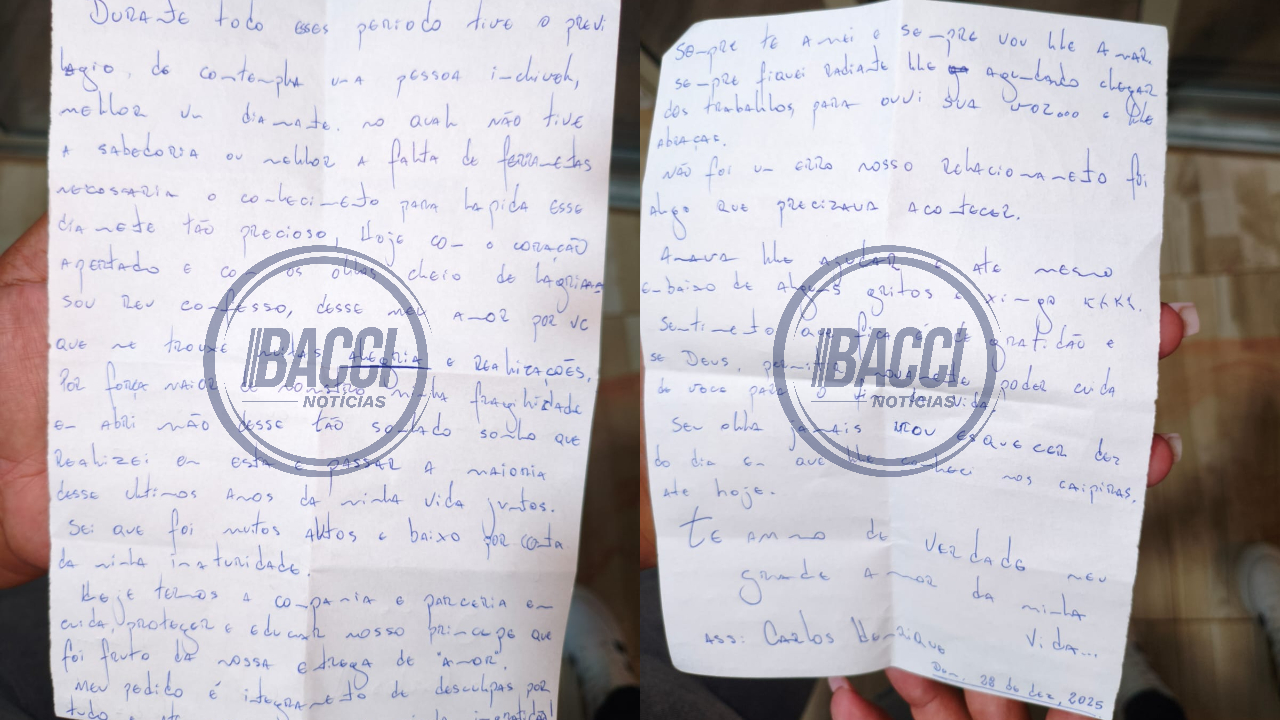 Durante todo esses periodo tive o previ
lagio, de contempla uma pessoa inclivel,
melhor um diamante. no qual não tive
a sabedoria ou melhor a falta de ferrametas
necossaria o conhecimento para lapida esse
diamete tão precioso, Hoje com o coração
apertado e com os olhos cheio de lagrimas
sou reu confesso, desse meu amor por vc
que me trouxe muitas alegria e realizações,
Por força maior e minha fragilidade
em abri mão desse tão sonhado sonho que
realizei em esta e passar a maioria
desse ultimos anos da minha vida juntos.
Sei que foi muitos altos e baixo por conta
da minha imaturidade.
Hoje temos a compania e parceria em
cuida, proteger e educar nosso principe que
foi fruto da nossa entrega de "Amor".
Meu pedido é integramento de desculpas por
tudo
Sempre te amei e sempre vou lhe amar
sempre fiquei radiante lhe agundado chegar
dos trabalhos, para ouvi sua voz... e lhe
abraças.
Não foi um erro nosso relacionamento foi
algo que precizava acontecer.
Amava lhe agudar e ate mesmo
embaixo de alguns gritos e xingo kkkk.
Sentimento que fica é de gratidão e
se Deus, permitir novamente poder cuida
de voce para o fim da vida!
Seu olha jamais vou esquecer dez
do dia em que lhe conheci nos caipiras.
ate hoje.
Te ammo de verdade meu
grande amor da minha
vida...
Ass: Carlos Henrique
Dom, 28 de dez, 2025
BACCI
NOTÍCIAS
BACCI
NOTÍCIAS